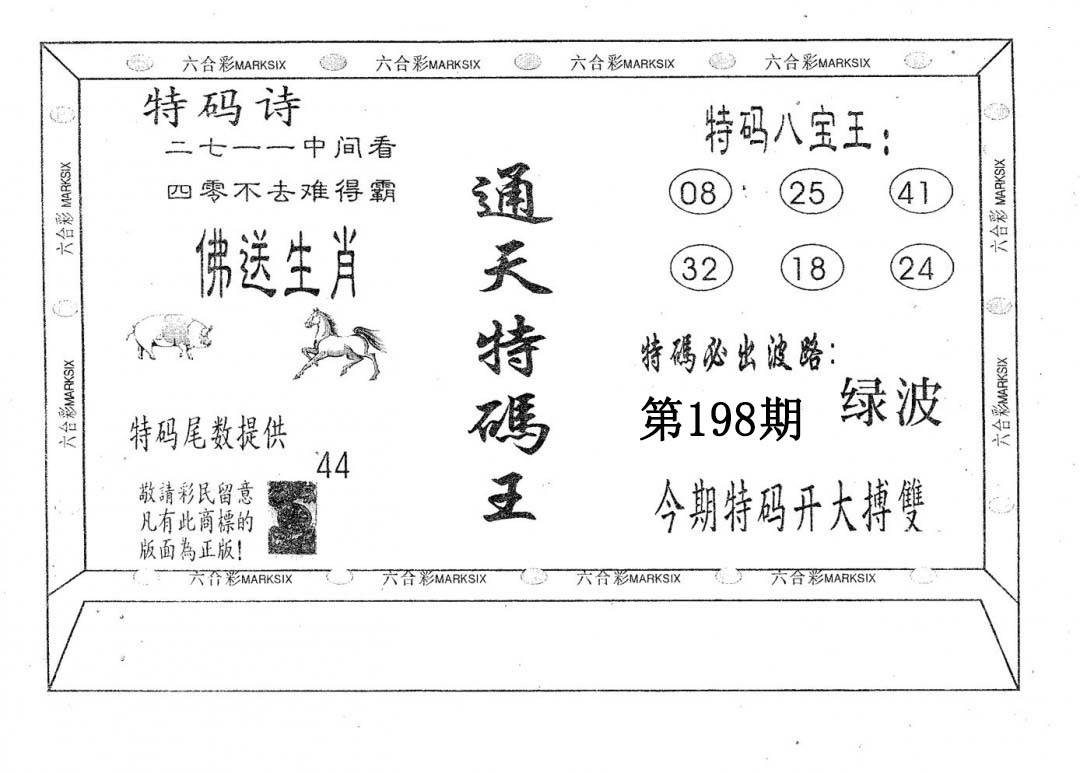 六合彩MARKSIX 六合彩MARKSIX 六合彩MARKSIX 六合彩MARKSIX
特码诗
二七一一中间看
四零不去难得霸
佛送生肖
特码尾数提供
44
敬請彩民留意
凡有此商標的
版面為正版!
通天特碼王
特码八宝王:
08 25 41
32 18 24
特碼必出波路:
绿波
第198期
今期特码开大搏雙
六合彩 MARKSIX
六合彩MARKSIX
六合彩 MARKSIX
六合彩MARKSIX
六合彩MARKSIX 六合彩MARKSIX 六合彩MARKSIX 六合彩MARKSIX